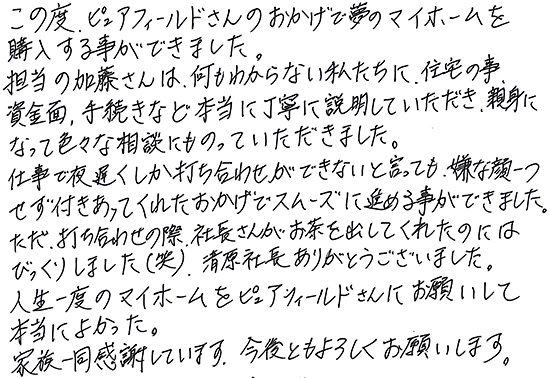 この度、ピュアフィールドさんのおかげで夢のマイホームを
購入する事ができました。
担当の加藤さんは、何もわからない私たちに、住宅の事、
資金面、手続きなど本当に丁寧に説明していただき、親身に
なって色々な相談にものっていただきました。
仕事で夜遅くしか打ち合わせができないと言っても、嫌な顔一つ
せず付きあってくれたおかげでスムーズに進める事ができました。
ただ、打ち合わせの際、社長さんがお茶を出してくれたのには
びっくりしました(笑)、清原社長ありがとうございました。
人生一度のマイホームをピュアフィールドさんにお願いして
本当によかった。
家族一同感謝しています、今後ともよろしくお願いします。